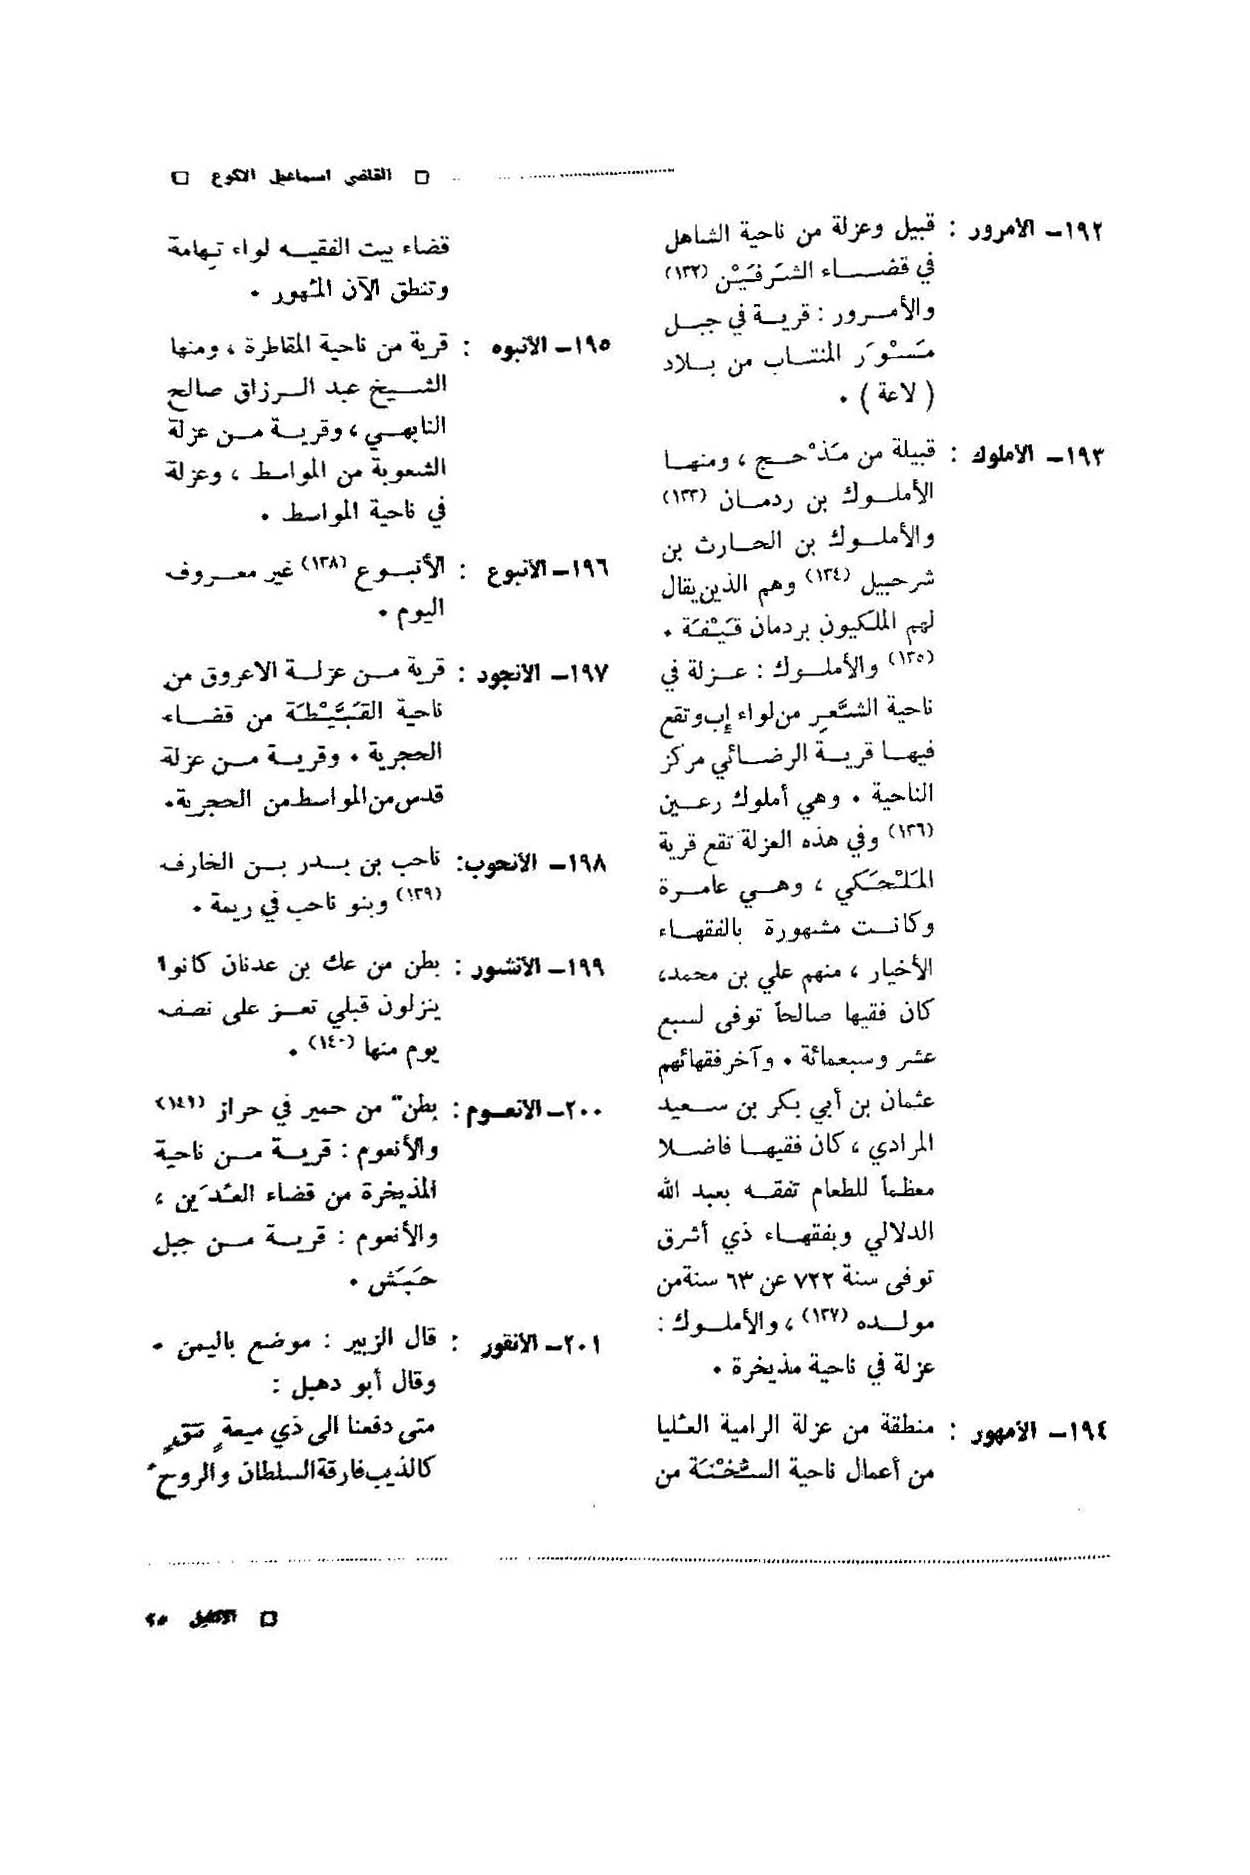 القاضي اسماعيل الاكوع
١٩٢ــ الأمرور : قبيل وعزلة من ناحية الشاهل
في قضاء الشَرَفَيْن (١٣٢)
والأمرور : قرية في جبل
مَسْوَر المنتاب من بلاد
( لاعة ) .
١٩٣ــ الأملوك : قبيلة من مَذْحج ، ومنها
الأملوك بن ردمان (١٣٣)
والأملوك بن الحارث بن
شرحبيل (١٣٤) وهم الذين يقال
لهم الملكيون بردمان قَيْفَة .
(١٣٥) والأملوك : عزلة في
ناحية الشَّعِر من لواء إب وتقع
فيها قرية الرضائي مركز
الناحية . وهي أملوك رعين
(١٣٦) وفي هذه العزلة تقع قرية
المَلْحَكي ، وهي عامرة
وكانت مشهورة بالفقهاء
الأخيار ، منهم علي بن محمد،
كان فقيها صالحاً توفى لسبع
عشر وسبعمائة . وآخر فقهائهم
عثمان بن أبي بكر بن سعيد
المرادي ، كان فقيها فاضلا
معظماً للطعام تفقه بعبد الله
الدلالي وبفقهاء ذي أشرق
توفى سنة ٧٢٢ عن ٦٣ سنة من
مولده (١٣٧) ، والأملوك :
عزلة في ناحية مذيخرة .
١٩٤ــ الأمهور : منطقة من عزلة الرامية العُليا
من أعمال ناحية السُّخْنَة من
قضاء بيت الفقيه لواء تِهامة
وتنطق الآن المْهور .
١٩٥ــ الأنبوه : قرية من ناحية المقاطرة ، ومنها
الشيخ عبد الرزاق صالح
النابهي ، وقرية من عزلة
الشعوبة من المواسط ، وعزلة
في ناحية المواسط .
١٩٦ــ الأنبوع : الأنبوع (١٣٨) غير معروف
اليوم .
١٩٧ــ الأنجود : قرية من عزلة الاعروق من
ناحية القَبَّيْطَة من قضاء
الحجرية . وقرية من عزلة
قدس من المواسط من الحجرية .
١٩٨ــ الأنحوب: ناحب بن بدر بن الخارف
(١٣٩) وبنو ناحب في ريمة .
١٩٩ــ الأنشور : بطن من عك بن عدنان كانوا
ينزلون قبلي تعز على نصف
يوم منها (١٤٠) .
٢٠٠ــ الأنعوم : بطن من حمير في حراز (١٤١)
والأنعوم : قرية من ناحية
المذيخرة من قضاء العُدَين ،
والأنعوم : قرية من جبل
حَبَش .
٢٠١ــ الأنقور : قال الزبير : موضع باليمن .
وقال أبو دهبل :
متى دفعنا الى ذي ميعةٍ تئقٍ
كالذيب فارقة السلطان والروح
الاكليل ٢٥